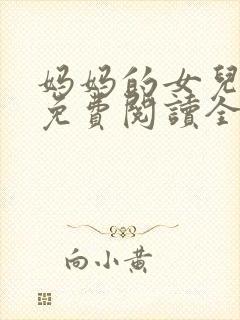 妈妈的女兒
免費閱讀全
向小黄